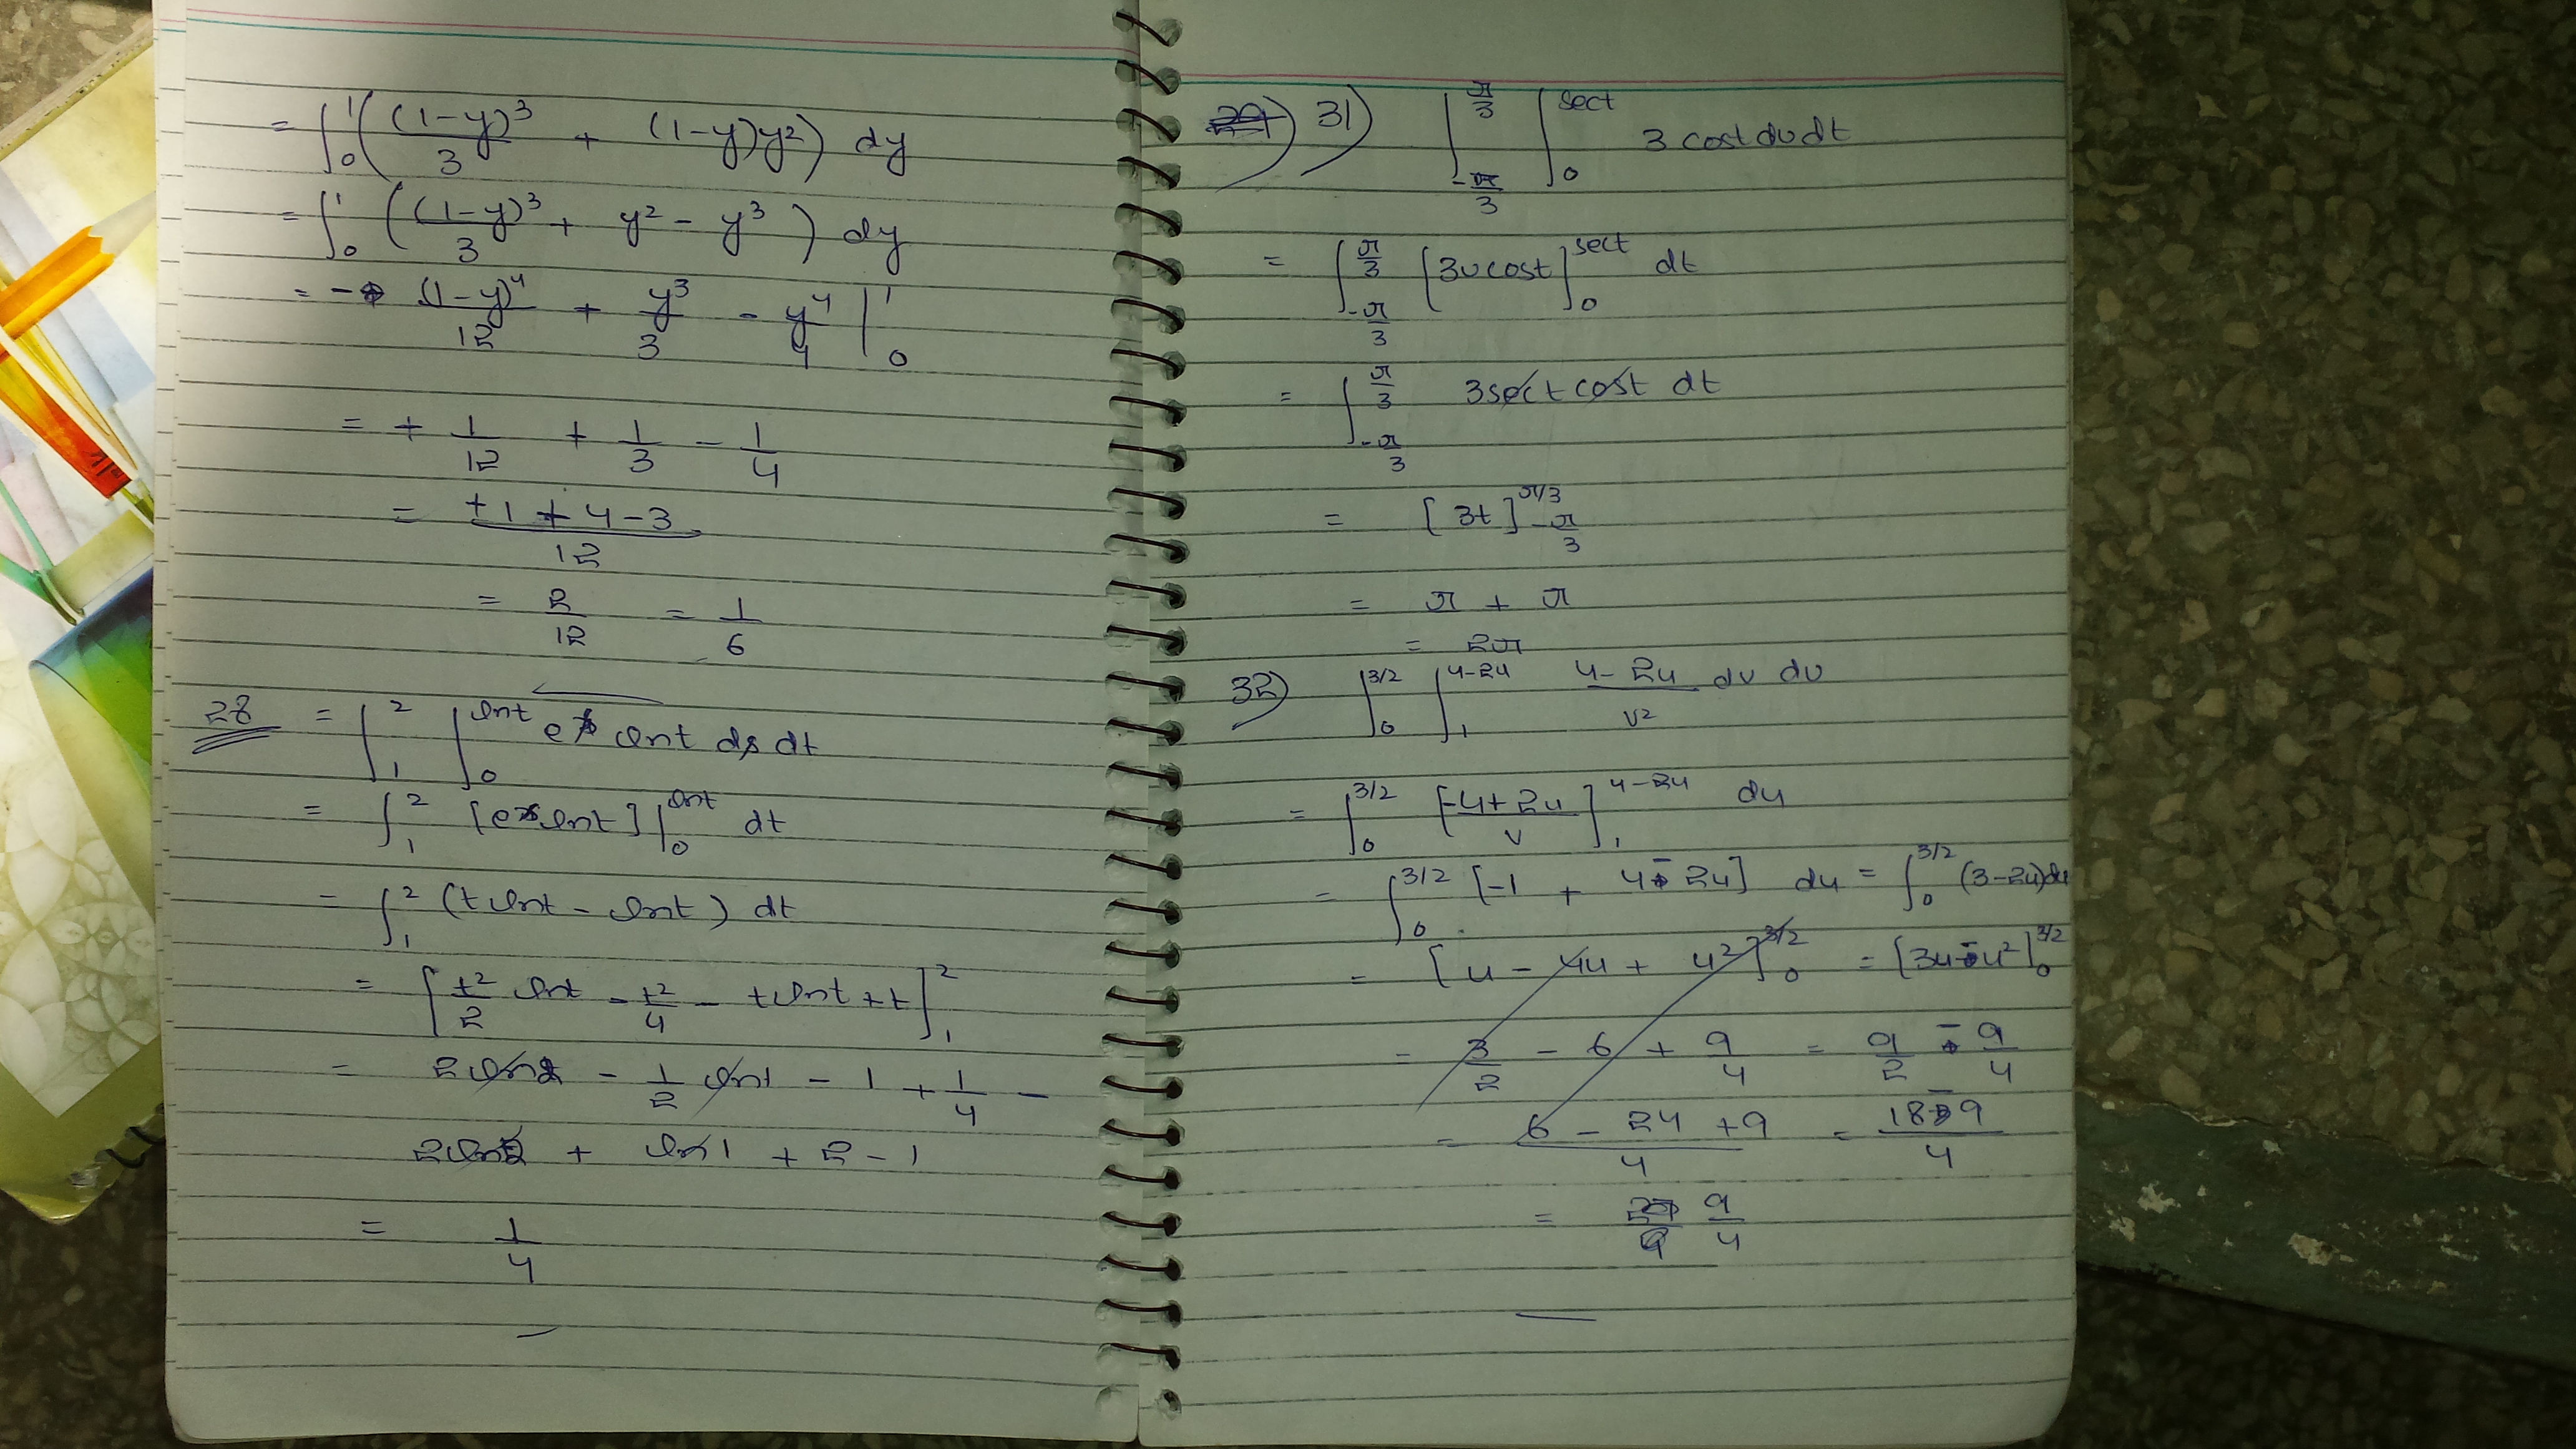 = ∫₀¹ ( (1-y)³/3 + (1-y)y² ) dy
= ∫₀¹ ( (1-y)³/3 + y² - y³ ) dy
= - (1-y)⁴/12 + y³/3 - y⁴/4 |₀¹
= + 1/12 + 1/3 - 1/4
= (+1 + 4 - 3)/12
= 2/12 = 1/6
28 = ∫₁² ∫₀^lnt eˢ lnt ds dt
= ∫₁² [eˢ lnt] |₀^lnt dt
= ∫₁² (t lnt - lnt) dt
= [ t²/2 lnt - t²/4 - t lnt + t ]₁²
= 2ln2 - 1/2 ln1 - 1 + 1/4 -
2ln2 + ln1 + 2 - 1
= 1/4
29) 31) ∫_{-π/3}^{π/3} ∫₀^{sect} 3 cost dv dt
= ∫_{-π/3}^{π/3} [3v cost]₀^{sect} dt
= ∫_{-π/3}^{π/3} 3 sect cost dt
= [3t]_{-π/3}^{π/3}
= π + π
= 2π
32) ∫₀^{3/2} ∫₁^{4-2u} (4-2u)/v² dv du
= ∫₀^{3/2} [(-4+2u)/v]₁^{4-2u} du
= ∫₀^{3/2} [-1 + 4 - 2u] du = ∫₀^{3/2} (3-2u)du
= [u - 4u + u²]₀^{3/2} = [3u - u²]₀^{3/2}
= 3/2 - 6 + 9/4 = 9/2 - 9/4
= (6 - 24 + 9)/4 = (18 - 9)/4
= 9/4